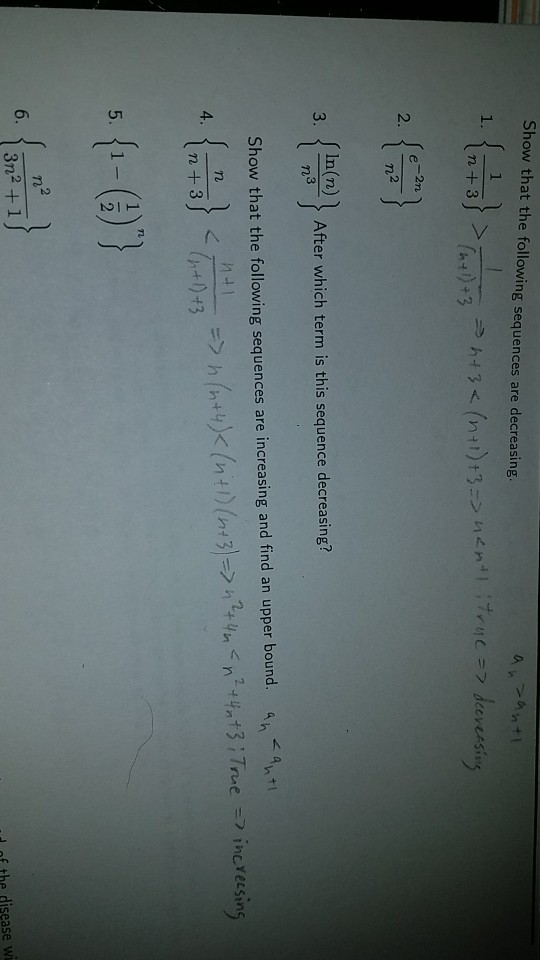 Show that the following sequences are decreasing. aₙ > aₙ₊₁
1. {1/(n + 3)} > 1/((n+1)+3) => n+3 < (n+1)+3 => n<n+1 ; true => decreasing
2. {e⁻²ⁿ/n²}
3. {ln(n)/n³} After which term is this sequence decreasing?
Show that the following sequences are increasing and find an upper bound. aₙ < aₙ₊₁
4. {n/(n + 3)} < (n+1)/((n+1)+3) => n(n+4)<(n+1)(n+3) => n²+4n < n²+4n+3 ; True => increasing
5. {1 − (1/2)ⁿ}
6. {n²/(3n² + 1)}
of the disease